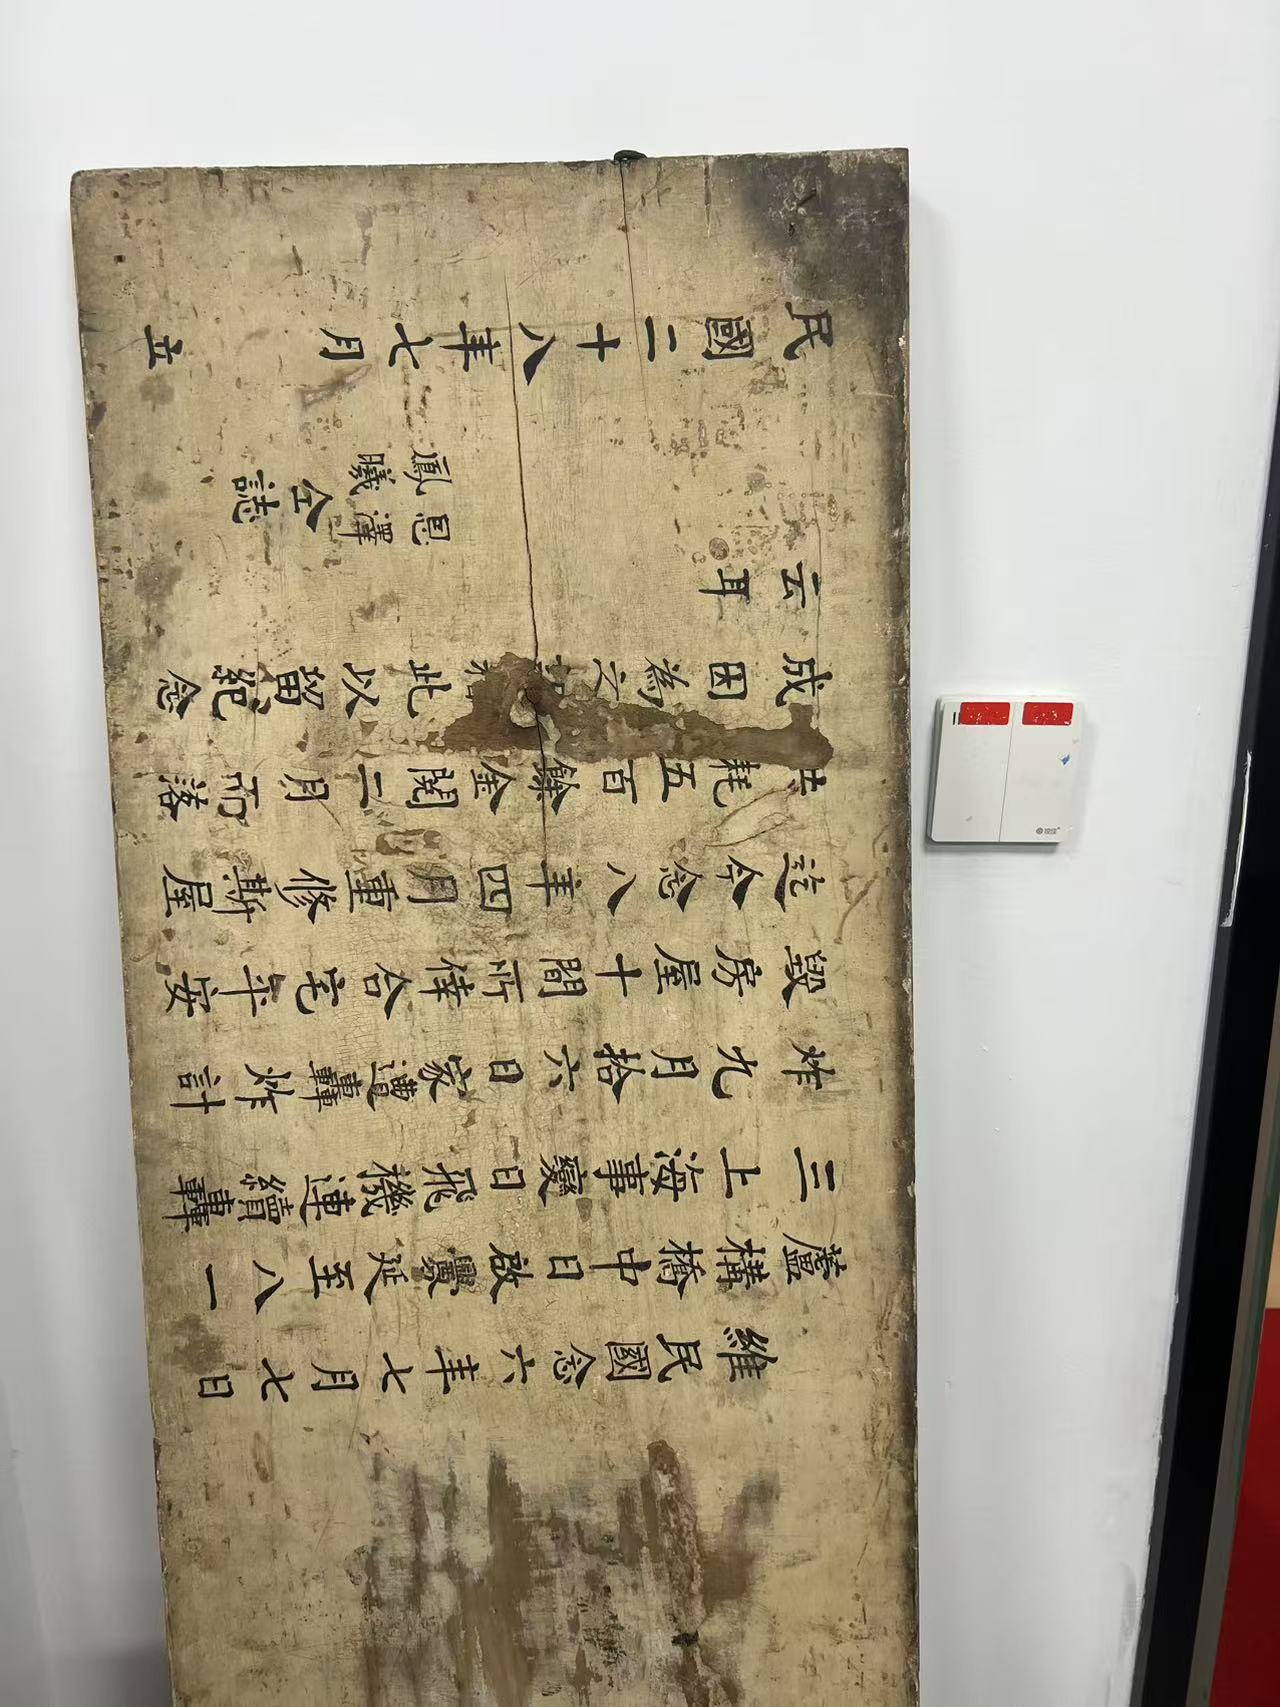 維民國念六年七月七日
蘆構橋中日啟釁延至八一
三上海事變日飛機連續轟
炸九月拾六日家遭轟炸計
毀房屋十間所倖合宅平安
迄今念八年四月重修斯屋
共耗五百餘金閱二月而落
成因為文 此以留紀念
云耳
鳳恩
曦澤
仝誌
民國二十八年七月 立